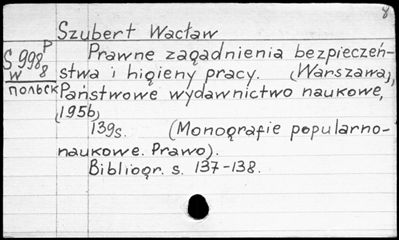 8
Szubert Wacław
S 998 P
8
W
польск
Prawne zagadnienia bezpieczeń-
stwa i higieny pracy. (Warszawa),
Państwowe wydawnictwo naukowe,
(1956)
139s. (Monografie popularno-
naukowe. Prawo).
Bibliogr. s. 137-138.